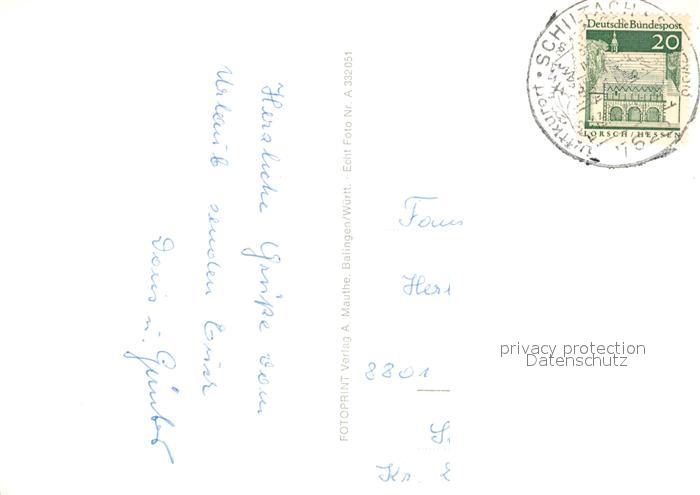 Herzliche Grüße vom
Urlaub senden Euch
Doris u. Günter
FOTOPRINT Verlag A. Mauthe, Balingen/Württ. · Echt Foto Nr. A 332 051
Deutsche Bundespost
20
LORSCH/HESSEN
SCHILTACH
LUFTKURORT
762
Fam
Her
8801
Kr.
privacy protection
Datenschutz